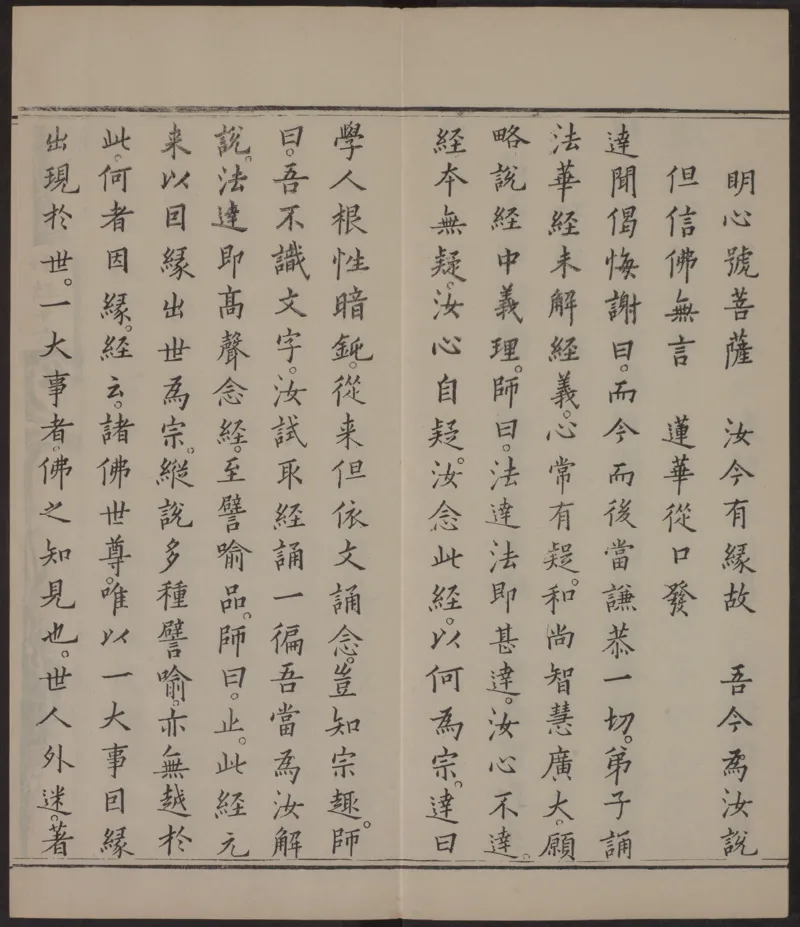 明心號菩薩　汝今有縁故　吾今為汝說
但信佛無言　蓮華從口發
達聞偈悔謝曰。而今而後當謙恭一切。弟子誦
法華經未解經義。心常有疑。和尚智慧廣大。願
略說經中義理。師曰。法達法即甚達。汝心不達。
經本無疑。汝心自疑。汝念此經。以何為宗。達曰
學人根性暗鈍。從来但依文誦念。豈知宗趣。師
曰。吾不識文字。汝試取經誦一徧吾當為汝解
說。法達即髙聲念經。至譬喻品。師曰。止。此經元
来以因緣出世為宗。縱說多種譬喻。亦無越於
此。何者因緣。經云。諸佛世尊。唯以一大事因緣
出現於世。一大事者。佛之知見也。世人外迷。著